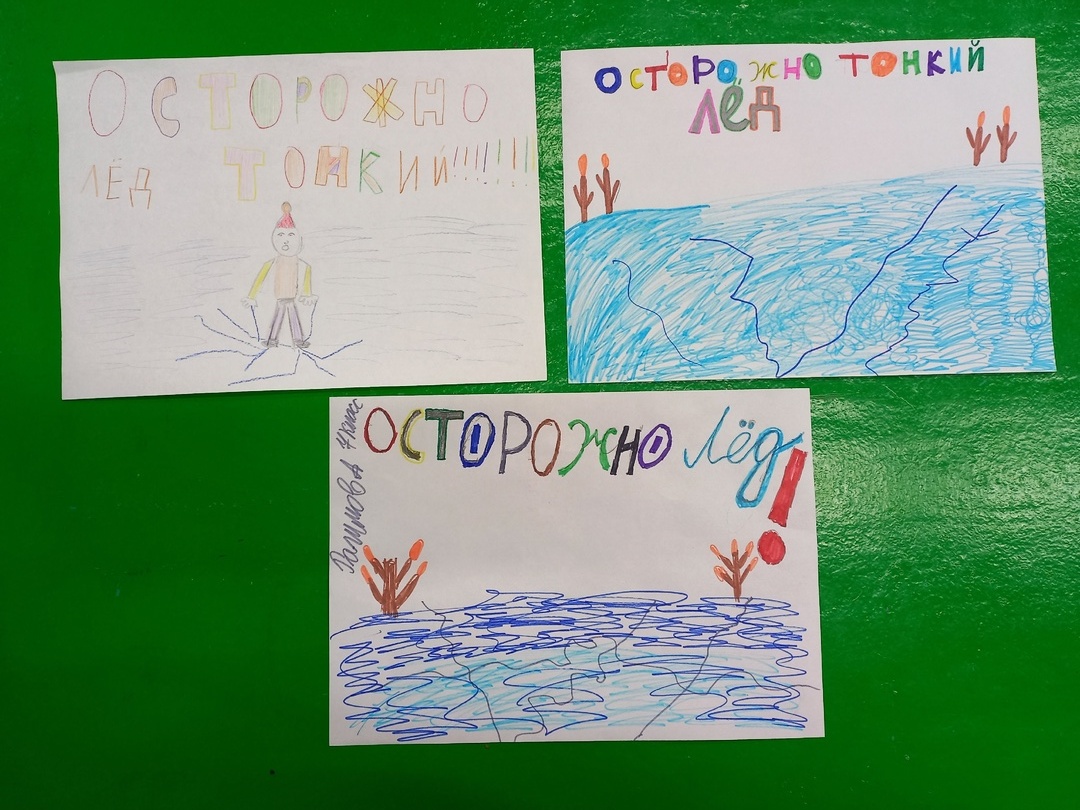 ОСТОРОЖНО
ЛЁД ТОНКИЙ!!!!!!!
ОСТОРОЖНО ТОНКИЙ
ЛЁД
ОСТОРОЖНО Лёд!
класс